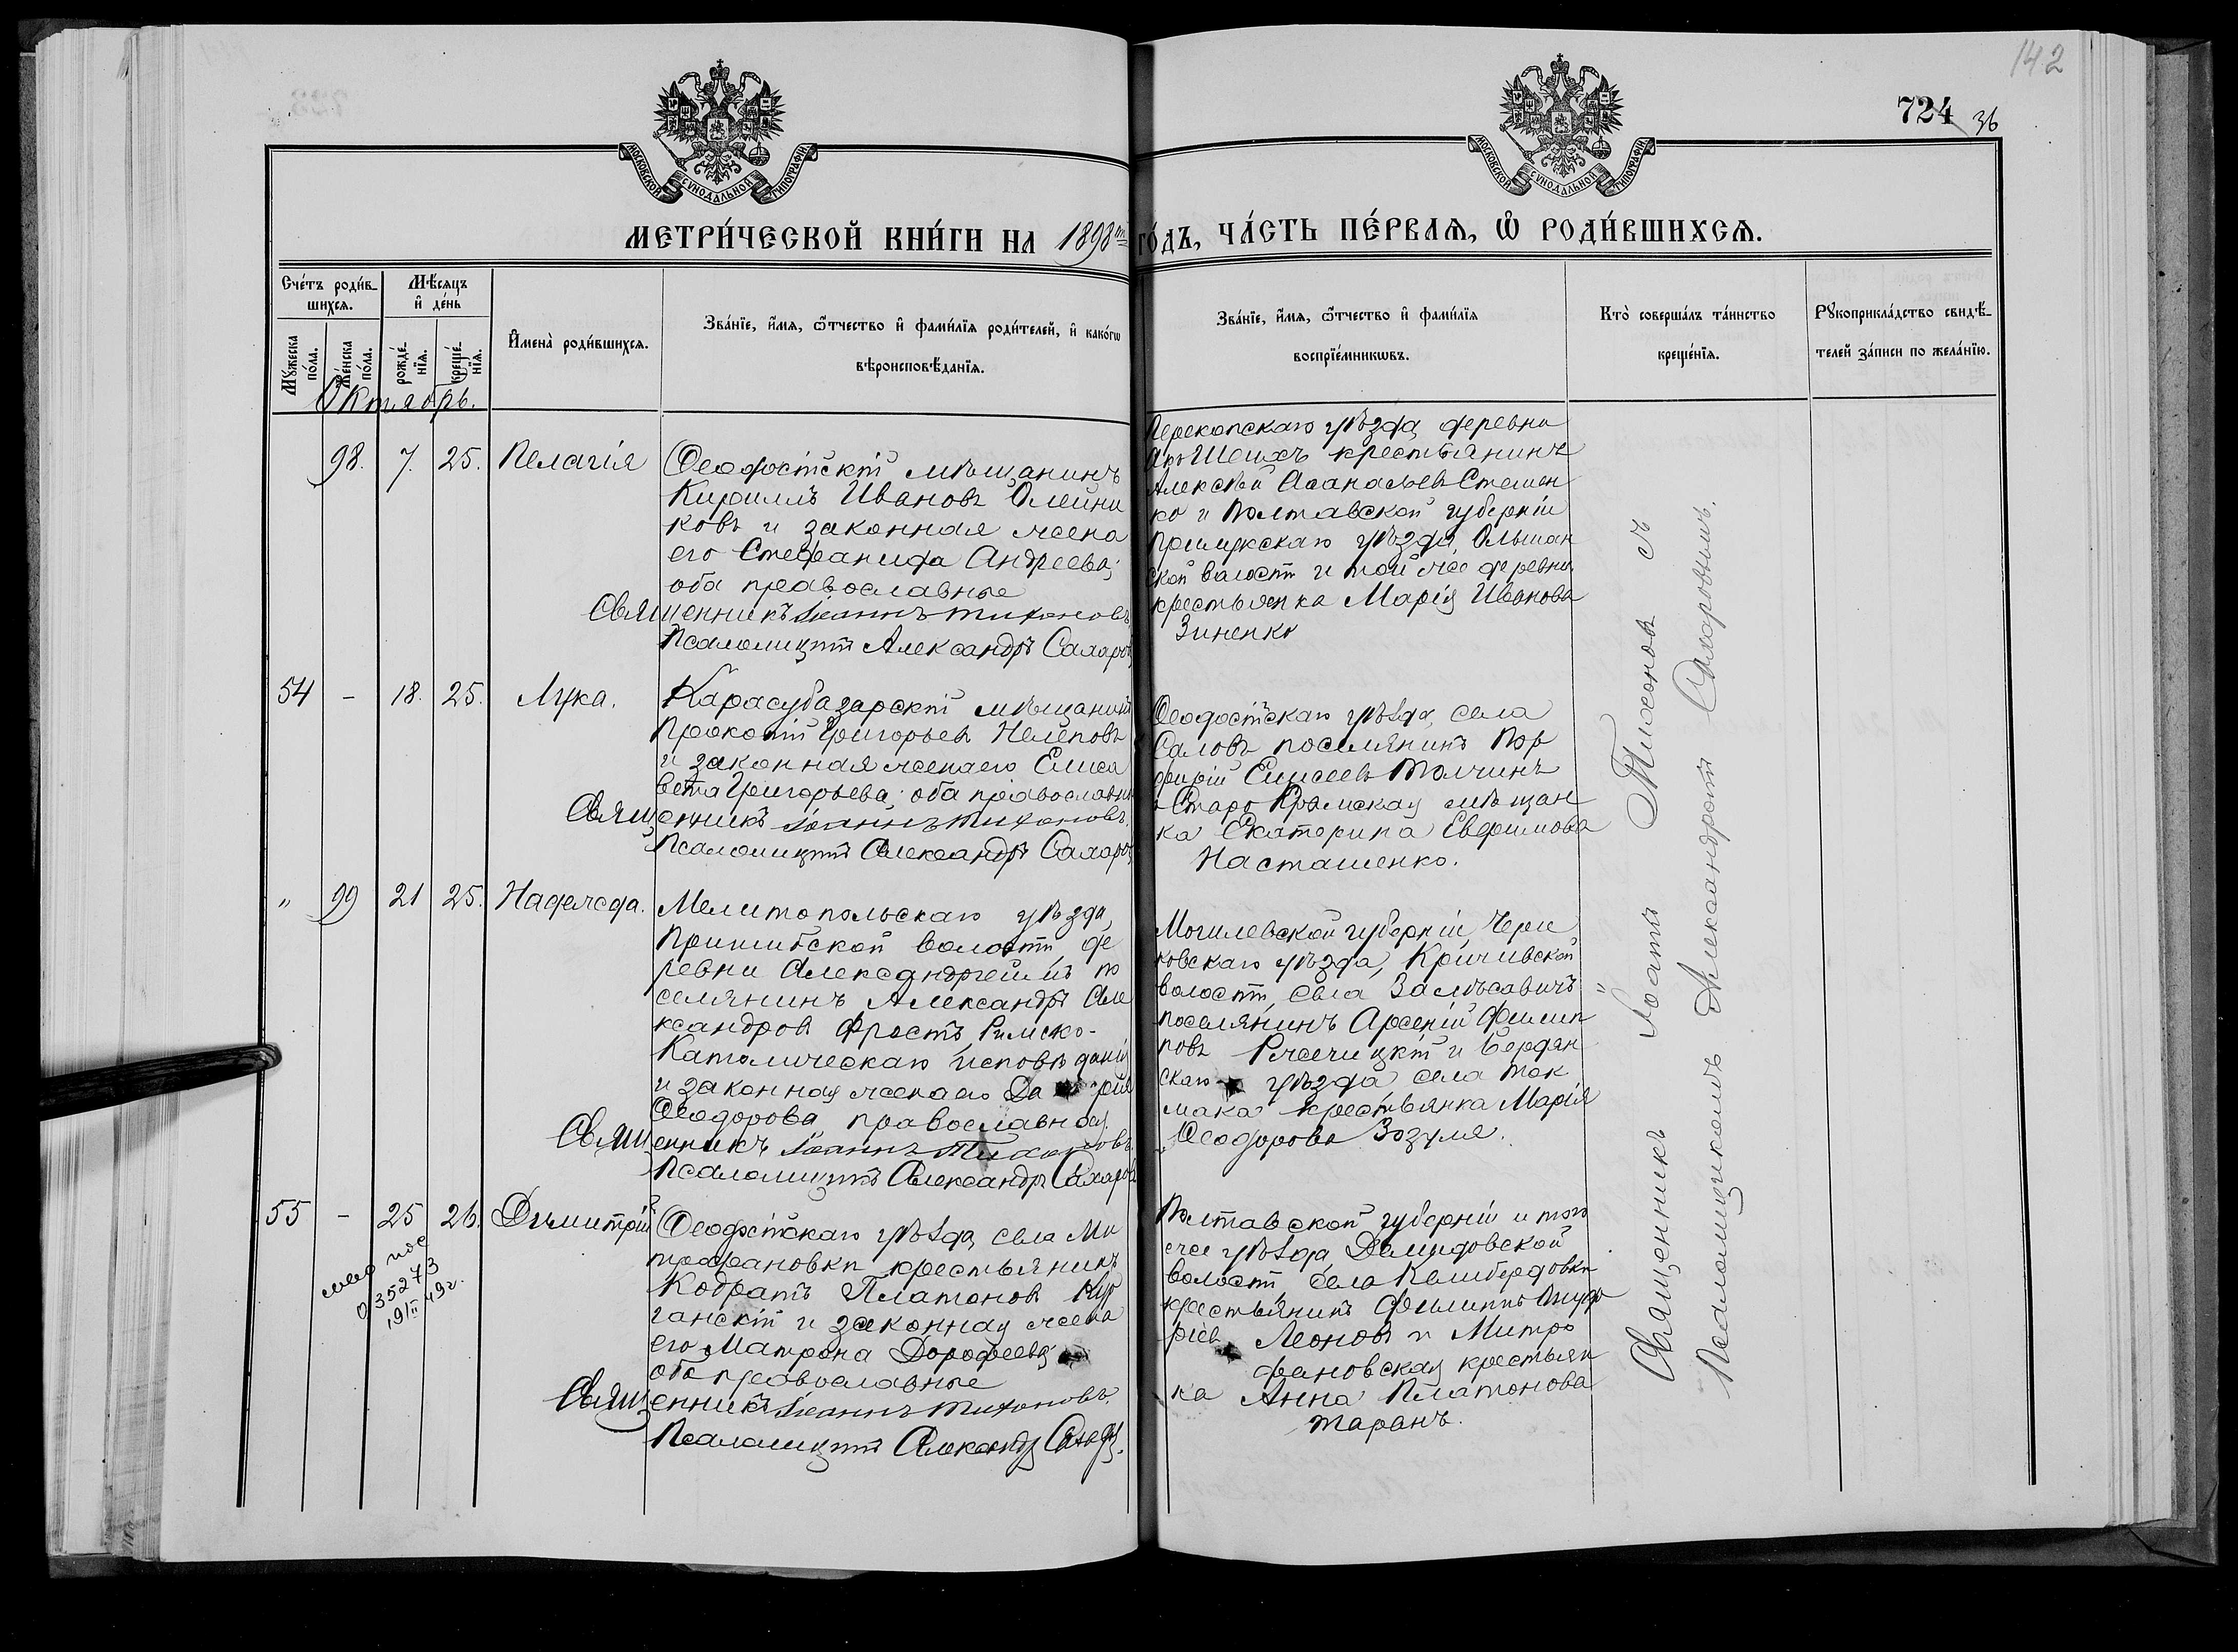 142
724 36
МОСКОВСКОЙ СѴНОДАЛЬНОЙ ТИПОГРАФІИ
МОСКОВСКОЙ СѴНОДАЛЬНОЙ ТИПОГРАФІИ
МЕТРИ́ЧЕСКОЙ КНИ́ГИ НА 1898 го́дъ, ЧА́СТЬ ПЕ́РВАѦ, Ѡ҆ РОДИ́ВШИХСѦ.
Сче́тъ роди́в-
шихсѧ.
Мѣ́сѧцъ
и҆ де́нь
Мꙋ́жеска по́ла.
Же́нска по́ла.
рожде́-нїѧ.
креще́-нїѧ.
И҆мена̀ роди́вшихсѧ.
Зва́нїе, и҆́мѧ, ѻ҆́тчество и҆ фами́лїѧ роди́телей, и҆ како́гѡ
вѣроисповѣ́данїѧ.
Зва́нїе, и҆́мѧ, ѻ҆́тчество и҆ фами́лїѧ
воспрїе́мникѡвъ.
Кто̀ соверша́лъ та́инство
креще́нїѧ.
Рꙋкоприкла́дство свидѣ́-
телей за́писи по жела́нїю.
Октябрь.
98. 7. 25. Пелагія
Ѳеодосійскій мѣщанинъ
Кириллъ Ивановъ Олейни
ковъ и законная жена
его Стефанида Андреева;
оба православные
Священникъ Іоаннъ Тихоновъ
Псаломщикъ Александръ Сахаровъ
Перекопскаго уѣзда деревни
Акъ Шеихъ крестьянинъ
Алексѣй Аѳанасьевъ Стешен
ко и Полтавской губерніи
Прилукскаго уѣзда, Ольшан
ской волости и той же деревни
крестьянка Марія Иванова
Зиненко
54 - 18. 25. Лука.
Карасубазарскій мѣщанинъ
Прокопій Григорьевъ Нелеповъ
и законная жена его Елиса
вета Григорьева; оба православн
Священникъ Іоаннъ Тихоновъ.
Псаломщикъ Александръ Сахаровъ
Ѳеодосійскаго уѣзда, села
Саловъ поселянинъ Пор
фирій Елисеевъ Толчинъ
и Старо Крымская мѣщан
ка Екатерина Евфимова
Насташенко.
" 99 21 25. Надежда.
Мелитопольскаго уѣзда,
Пришибской волости, де
ревни Александргеймъ по
селянинъ Александръ Але
ксандровъ Фростъ, Римско-
Католическаго исповѣданія
и законная жена его
Ѳеодорова православная.
Священникъ Іоаннъ Тихоновъ
Псаломщикъ Александръ Сахаровъ
Могилевской губерніи Чери
ковскаго уѣзда, Кричевской
волости, села
поселянинъ Арсеній Филип
повъ и Бердян
скаго уѣзда села Ток
мака крестьянка Марія
Ѳеодорова Зозуля.
55 - 25 26. Димитрій
035273
19 II 49г.
Ѳеодосійскаго уѣзда, села Ми
трофановки крестьянинъ
Кодратъ Платоновъ Кур
ганскій и законная жена
его Матрона Дорофеева;
оба православные
Священникъ Іоаннъ Тихоновъ.
Псаломщикъ Александръ Сахаровъ.
Полтавской губерніи и того
же уѣзда, Демидовской
волости, села
крестьянинъ Филиппъ Онуф
ріевъ Леоновъ и Митро
фановская крестьян
ка Анна Платонова
Таранъ.
Священникъ Іоаннъ Тихоновъ съ
Псаломщикомъ Александромъ Сахаровымъ.